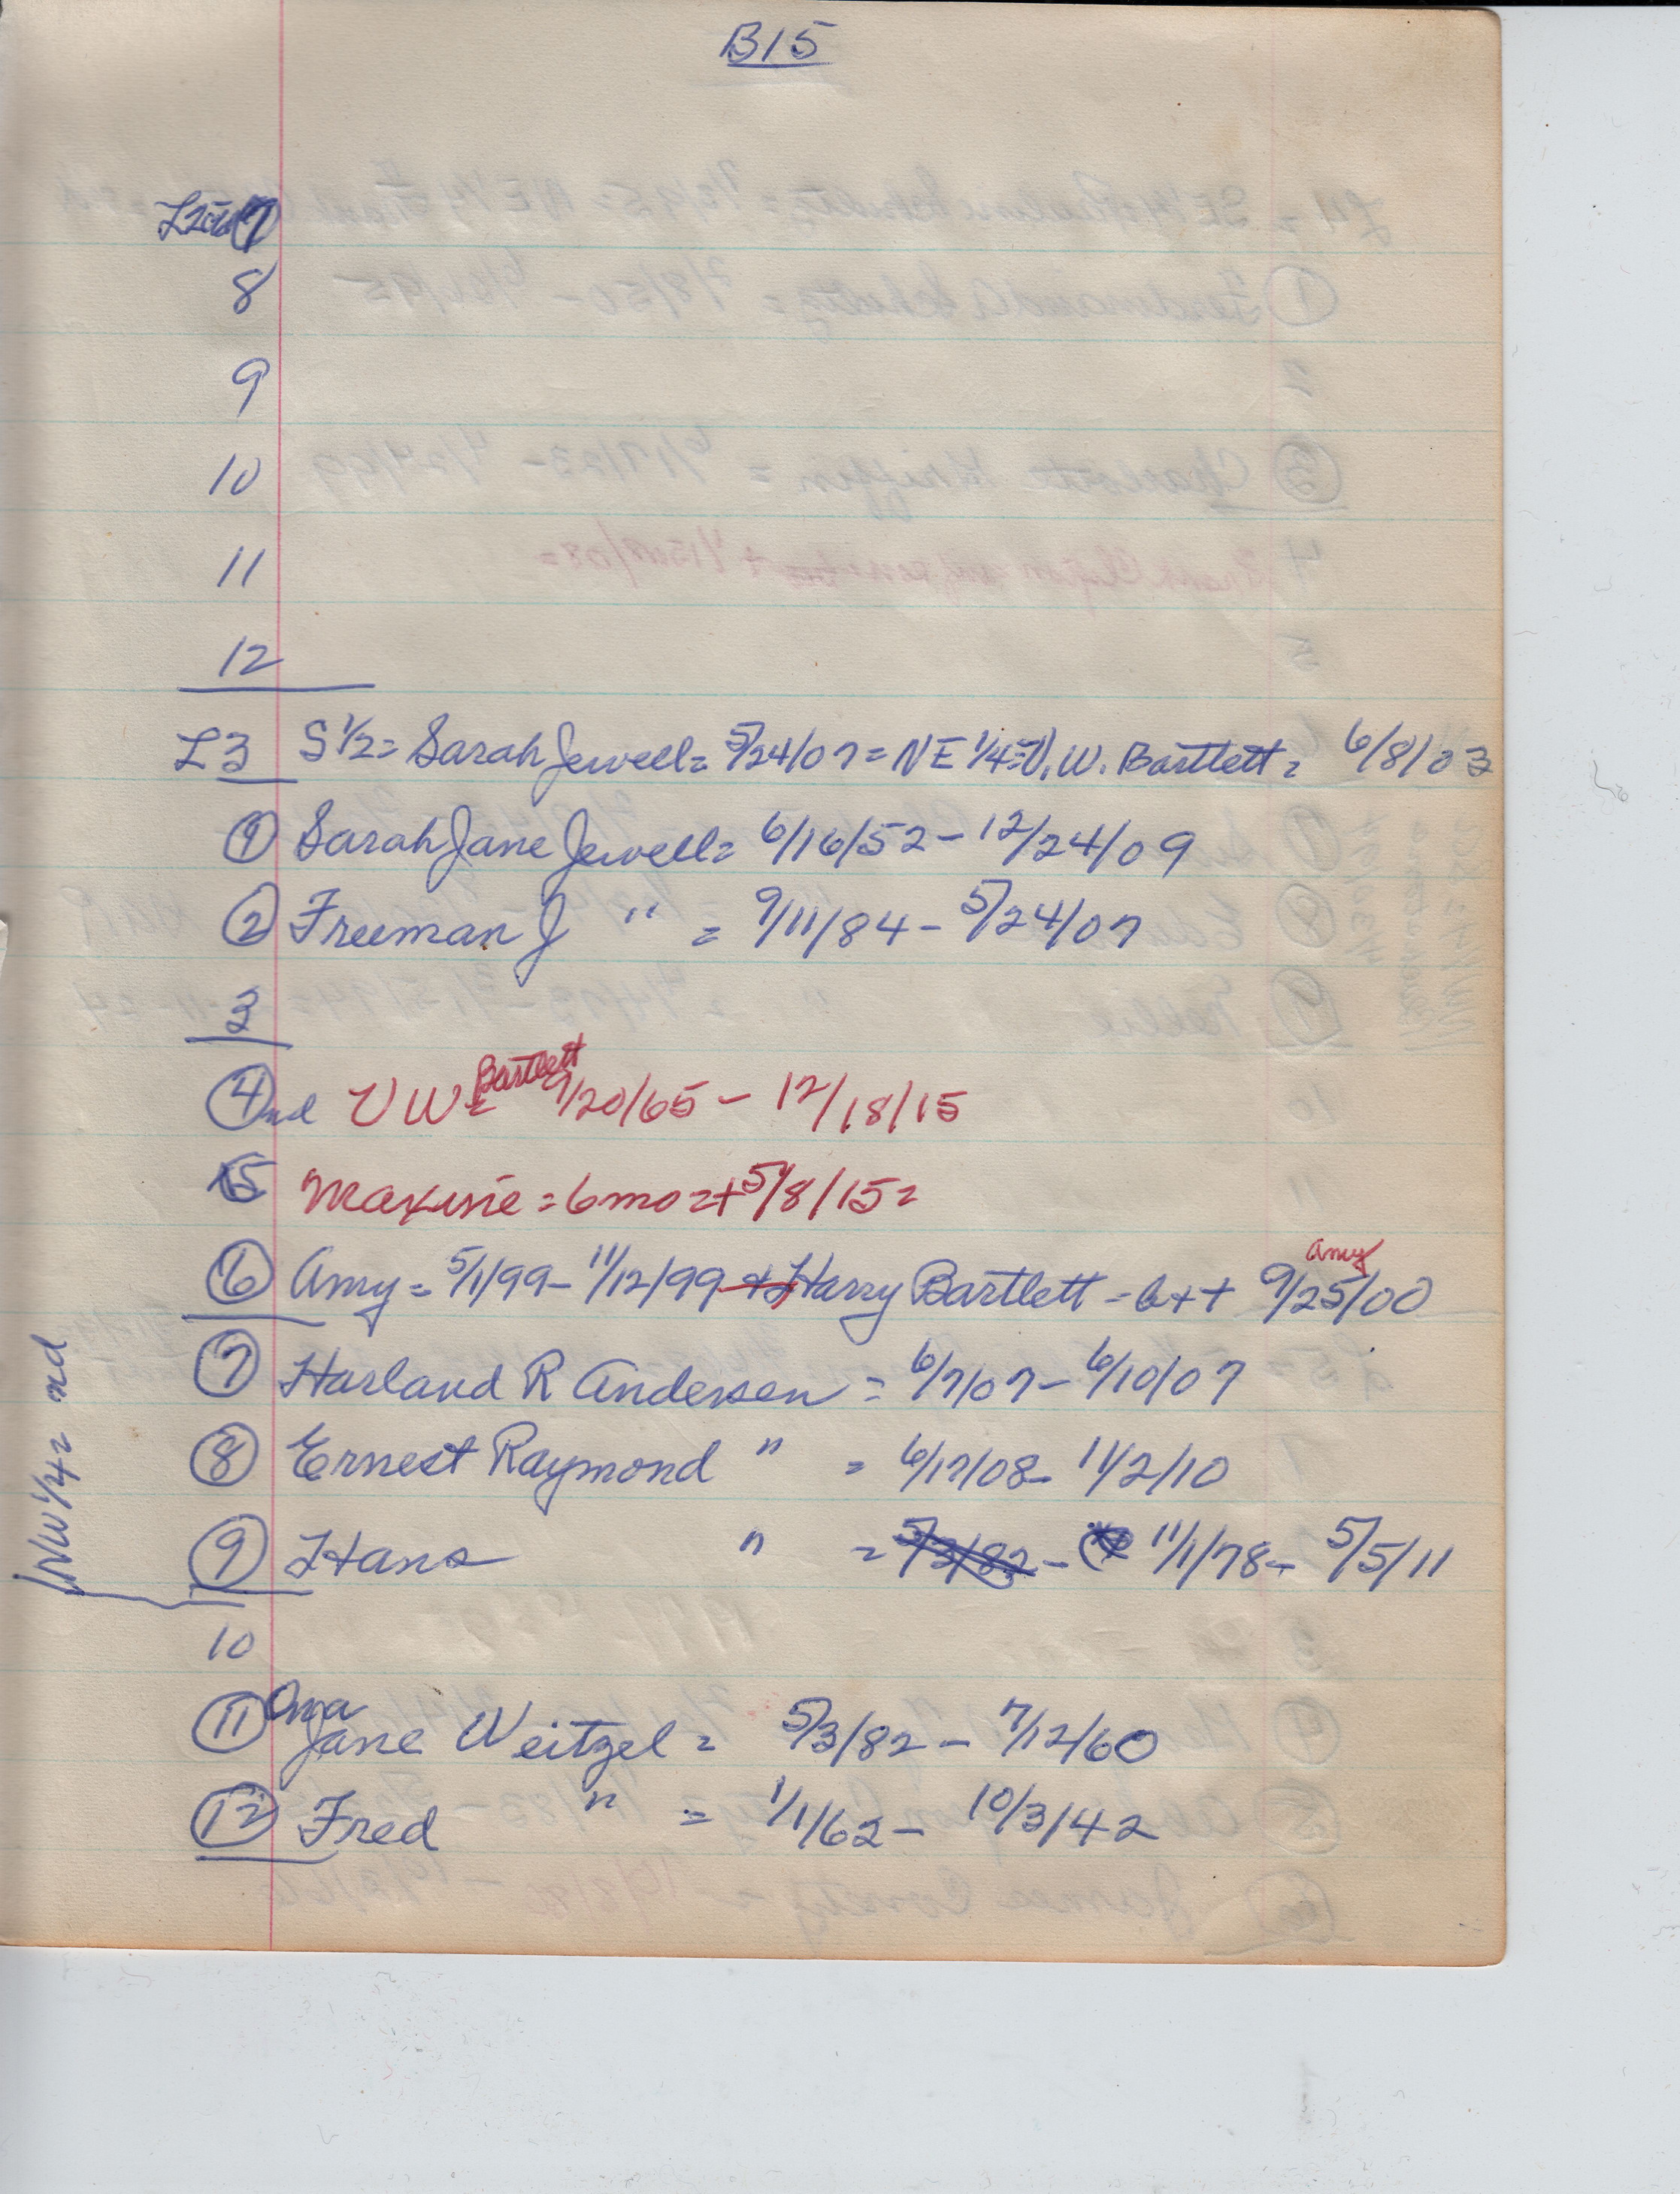 B15
7
8
9
10
11
12
L3 S 1/2 = Sarah Jewell = 5/24/07 = NE 1/4 = V. W. Bartlett = 6/8/03
1 Sarah Jane Jewell = 6/16/52 - 12/24/09
2 Freeman J " = 9/11/84 - 5/24/07
3
Bartlett
4 nd V W = 9/20/65 - 12/18/15
5 Maxine = 6 mo = + 5/8/15 =
Amy
6 Amy = 5/1/99 - 11/12/99 + Harry Bartlett - b + + 9/25/00
7 Harland R Andersen = 6/7/07 - 6/10/07
8 Ernest Raymond " = 6/17/08 - 11/2/10
NW 1/4 = nd
9 Hans " = 5/3/82 - 11/1/78 - 5/5/11
10
Ona
11 Jane Weitzel = 5/3/82 - 7/12/60
12 Fred " = 1/1/62 - 10/3/42